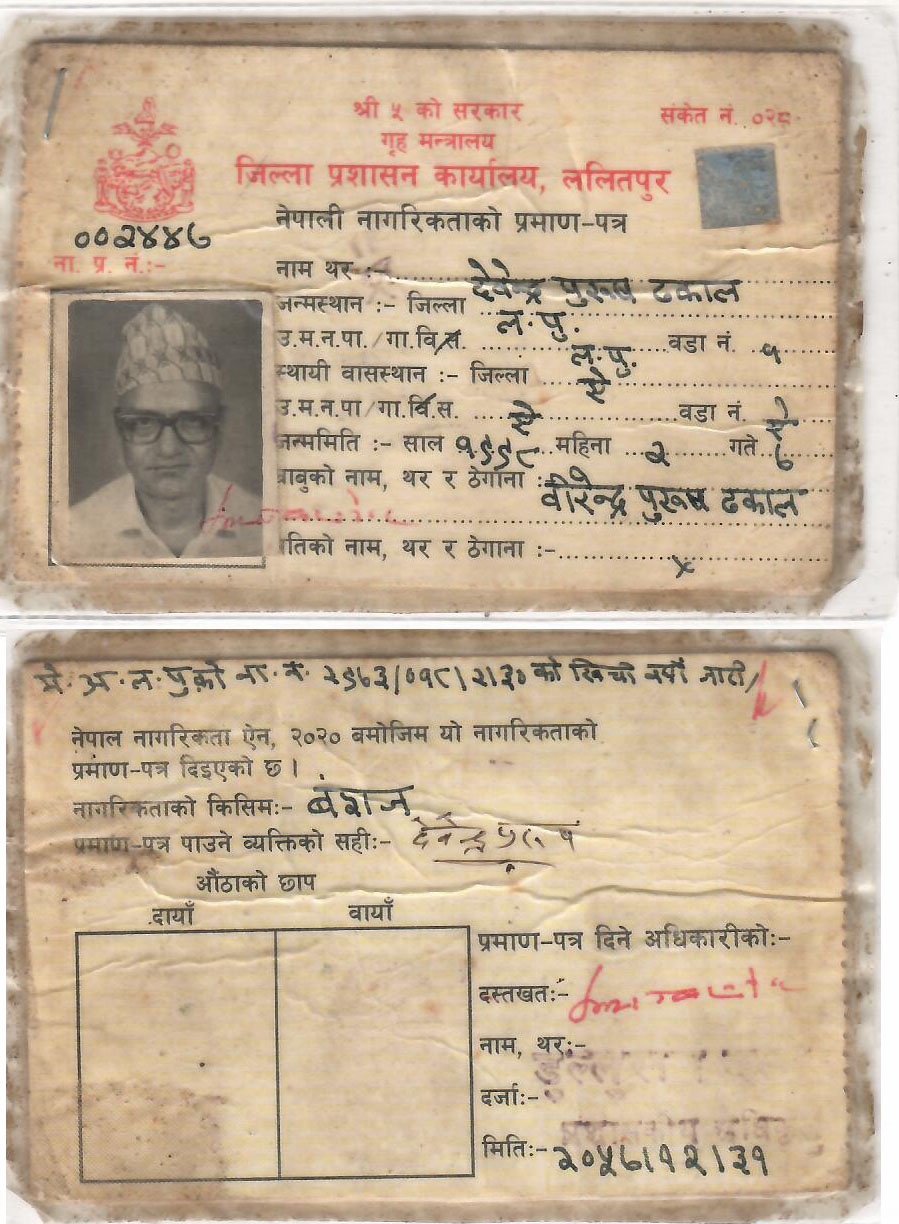 श्री ५ को सरकार
संकेत नं. ०२८
गृह मन्त्रालय
जिल्ला प्रशासन कार्यालय, ललितपुर
नेपाली नागरिकताको प्रमाण-पत्र
००२४४७
ना. प्र. नं.:-
नाम थर :- देवेन्द्र पुरूष ढकाल
जन्मस्थान :- जिल्ला ल.पु.
उ.म.न.पा./गा.वि.स. ल.पु. वडा नं. १
स्थायी वासस्थान :- जिल्ला ऐ
उ.म.न.पा/गा.वि.स. ऐ वडा नं. ऐ
जन्ममिति :- साल १९९८ महिना २ गते ७
बाबुको नाम, थर र ठेगाना :- वीरेन्द्र पुरूष ढकाल
पतिको नाम, थर र ठेगाना :- ×
अ.ल.पु.को ना.नं. २९६३/०१८/२/३० को
नेपाल नागरिकता ऐन, २०२० बमोजिम यो नागरिकताको
प्रमाण-पत्र दिइएको छ ।
नागरिकताको किसिम:- बंशज
प्रमाण-पत्र पाउने व्यक्तिको सही:- देवेन्द्र पुरूष
औंठाको छाप
दायाँ वायाँ
प्रमाण-पत्र दिने अधिकारीको:-
दस्तखत:-
नाम, थर:-
दर्जा:-
मिति:- २०५६।१२।३१